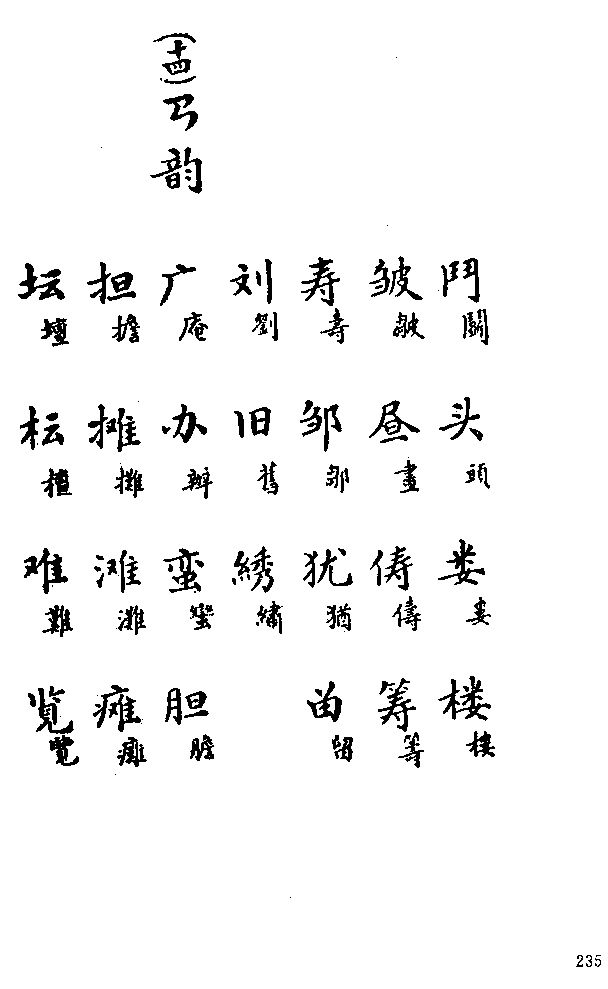 鬥鬪 头頭 娄婁 楼樓
皱皺 昼晝 俦儔 筹籌
寿壽 邹鄒 犹猶 畄留
刘劉 旧舊 綉繡
(十四)ㄢ韵
广庵 办辦 蛮蠻 胆膽
担擔 摊攤 滩灘 瘫癱
坛壇 枟檀 难難 览覽
235